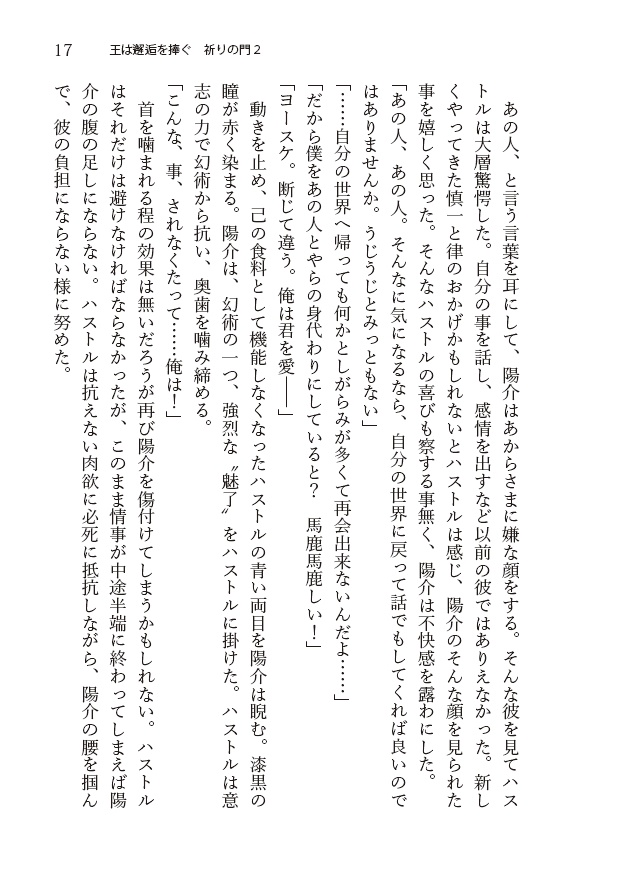 17 王は邂逅を捧ぐ　祈りの門２
　あの人、と言う言葉を耳にして、陽介はあからさまに嫌な顔をする。そんな彼を見てハス
トルは大層驚愕した。自分の事を話し、感情を出すなど以前の彼ではありえなかった。新し
くやってきた慎一と律のおかげかもしれないとハストルは感じ、陽介のそんな顔を見られた
事を嬉しく思った。そんなハストルの喜びも察する事無く、陽介は不快感を露わにした。
「あの人、あの人。そんなに気になるなら、自分の世界に戻って話でもしてくれば良いので
はありませんか。うじうじとみっともない」
「……自分の世界へ帰っても何かとしがらみが多くて再会出来ないんだよ……」
「だから僕をあの人とやらの身代わりにしていると？　馬鹿馬鹿しい！」
「ヨースケ。断じて違う。俺は君を愛――」
　動きを止め、己の食料として機能しなくなったハストルの青い両目を陽介は睨む。漆黒の
瞳が赤く染まる。陽介は、幻術の一つ、強烈な〝魅了〟をハストルに掛けた。ハストルは意
志の力で幻術から抗い、奥歯を噛み締める。
「こんな、事、されなくたって……俺は！」
　首を噛まれる程の効果は無いだろうが再び陽介を傷付けてしまうかもしれない。ハストル
はそれだけは避けなければならなかったが、このまま情事が中途半端に終わってしまえば陽
介の腹の足しにならない。ハストルは抗えない肉欲に必死に抵抗しながら、陽介の腰を掴ん
で、彼の負担にならない様に努めた。